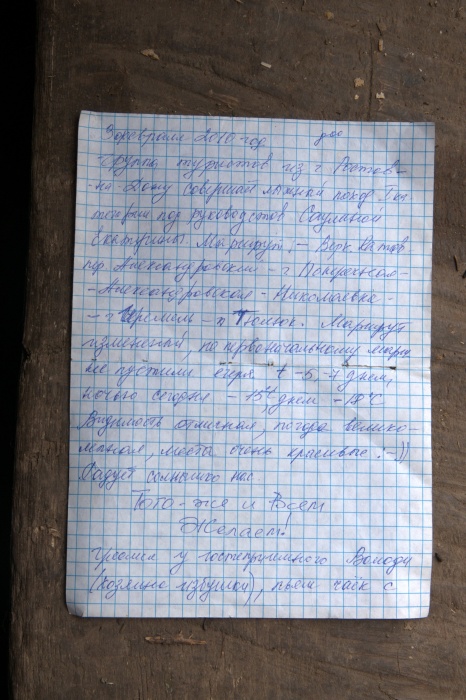 3 февраля 2010 год
группа туристов из г. Ростов-
-на-Дону совершает лыжный поход I к.с
под руководством
Маршрут: –
пер. Александровский – г. Поперечная –
– Александровская – Николаевка –
– г. Иремель – п. Тюлюк. Маршрут
изменённый, по первоначальному
не пустили егеря. t -5, -7 днем,
ночью сегодня -15°, днем -18°С
Видимость отличная, погода велико-
лепная, места очень красивые :-))
Радует солнышко нас
Того-же и Всем
Желаем!
Греемся у гостеприимного Володи
(хозяина избушки), пьем чаёк с